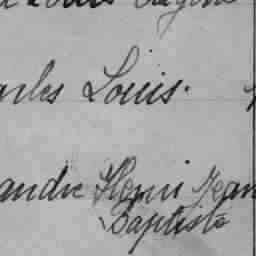 arles Louis.
andre Henri Jean
Baptiste